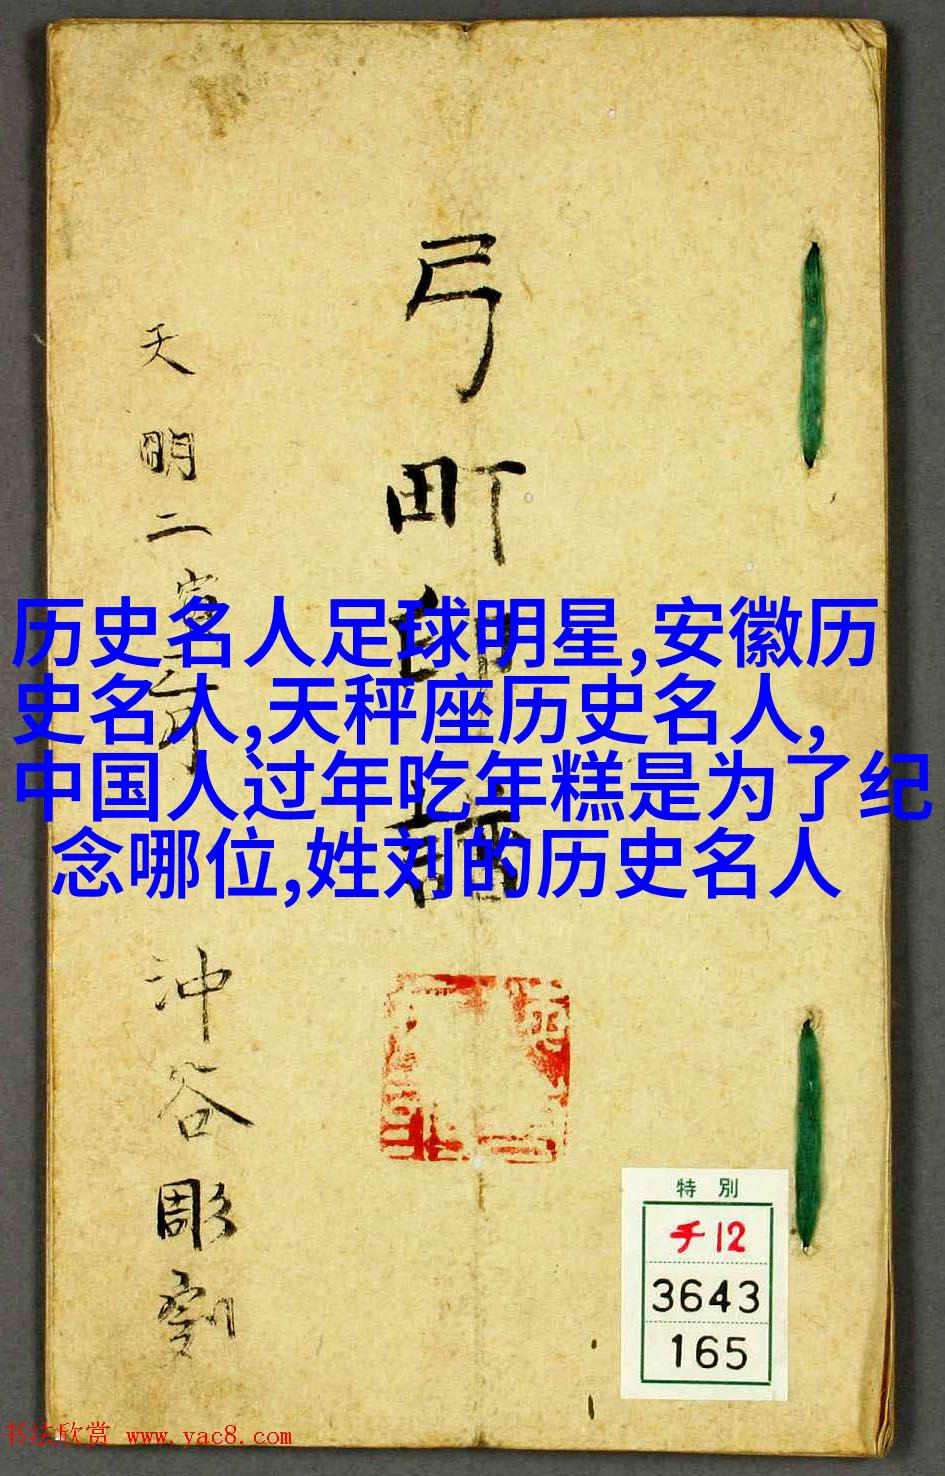 弓町印譜
天明二寅三月
沖谷彫刻
历史名人足球明星,安徽历
史名人,天秤座历史名人,
中国人过年吃年糕是为了纪
念哪位,姓刘的历史名人
特別
チ12
3643
165
书法欣赏 www.yac8.com